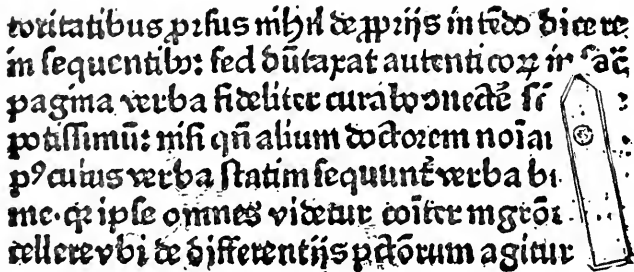 toritatibus ꝓrſus nihil de ꝓprijs intēdo dicere
in ſequentibꝰ: ſed dūtaxat autenticoꝝ in ſac̄
pagina verba fideliter curabo ↄnectē
potiſſimū: niſi qn̄ alium doctorem
pꝰ cuius verba ſtatim ſequunt᷑ verba
me. ipſe omnes videtur cōiter
cellere vbi de differentijs agitur